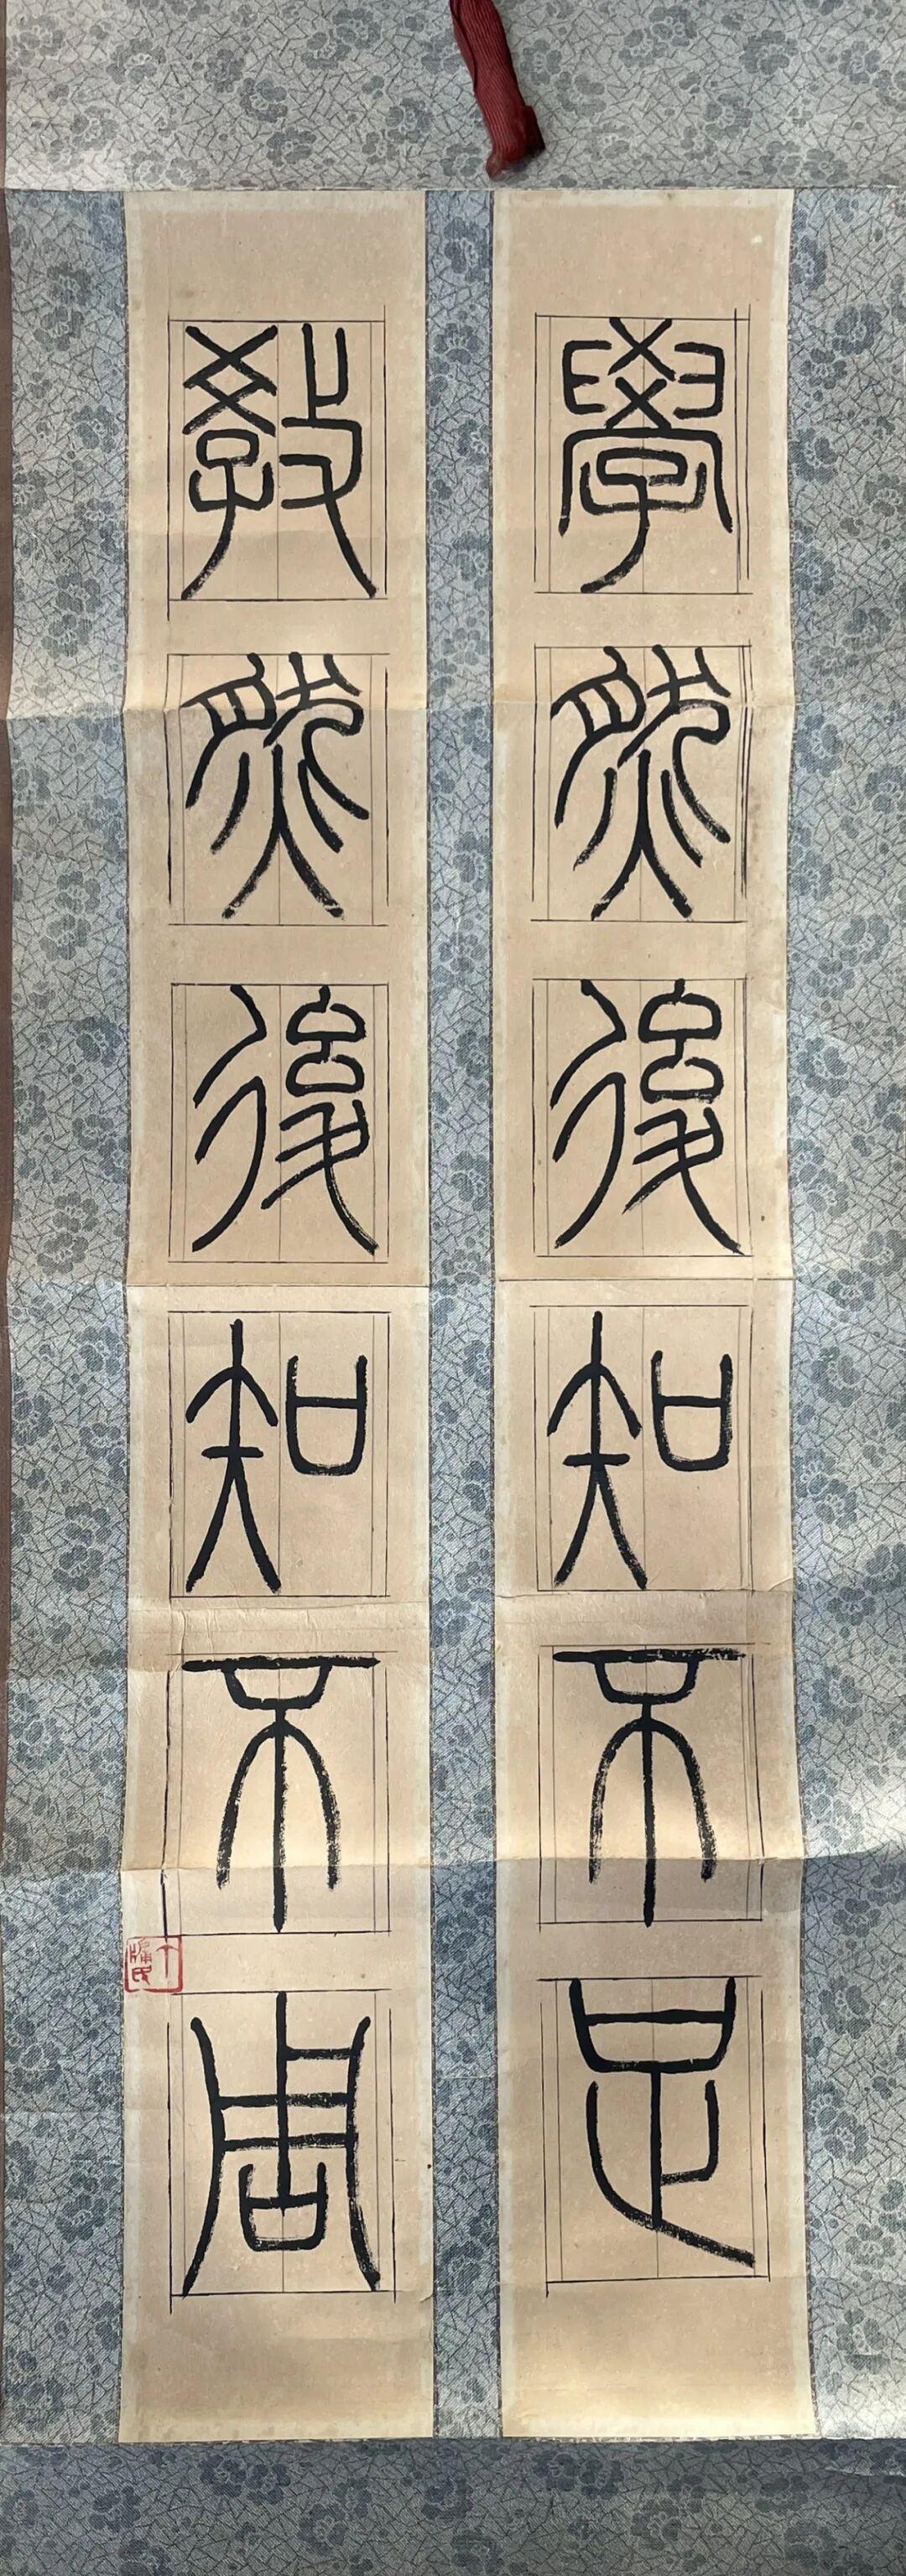 學然後知不足
教然後知不周